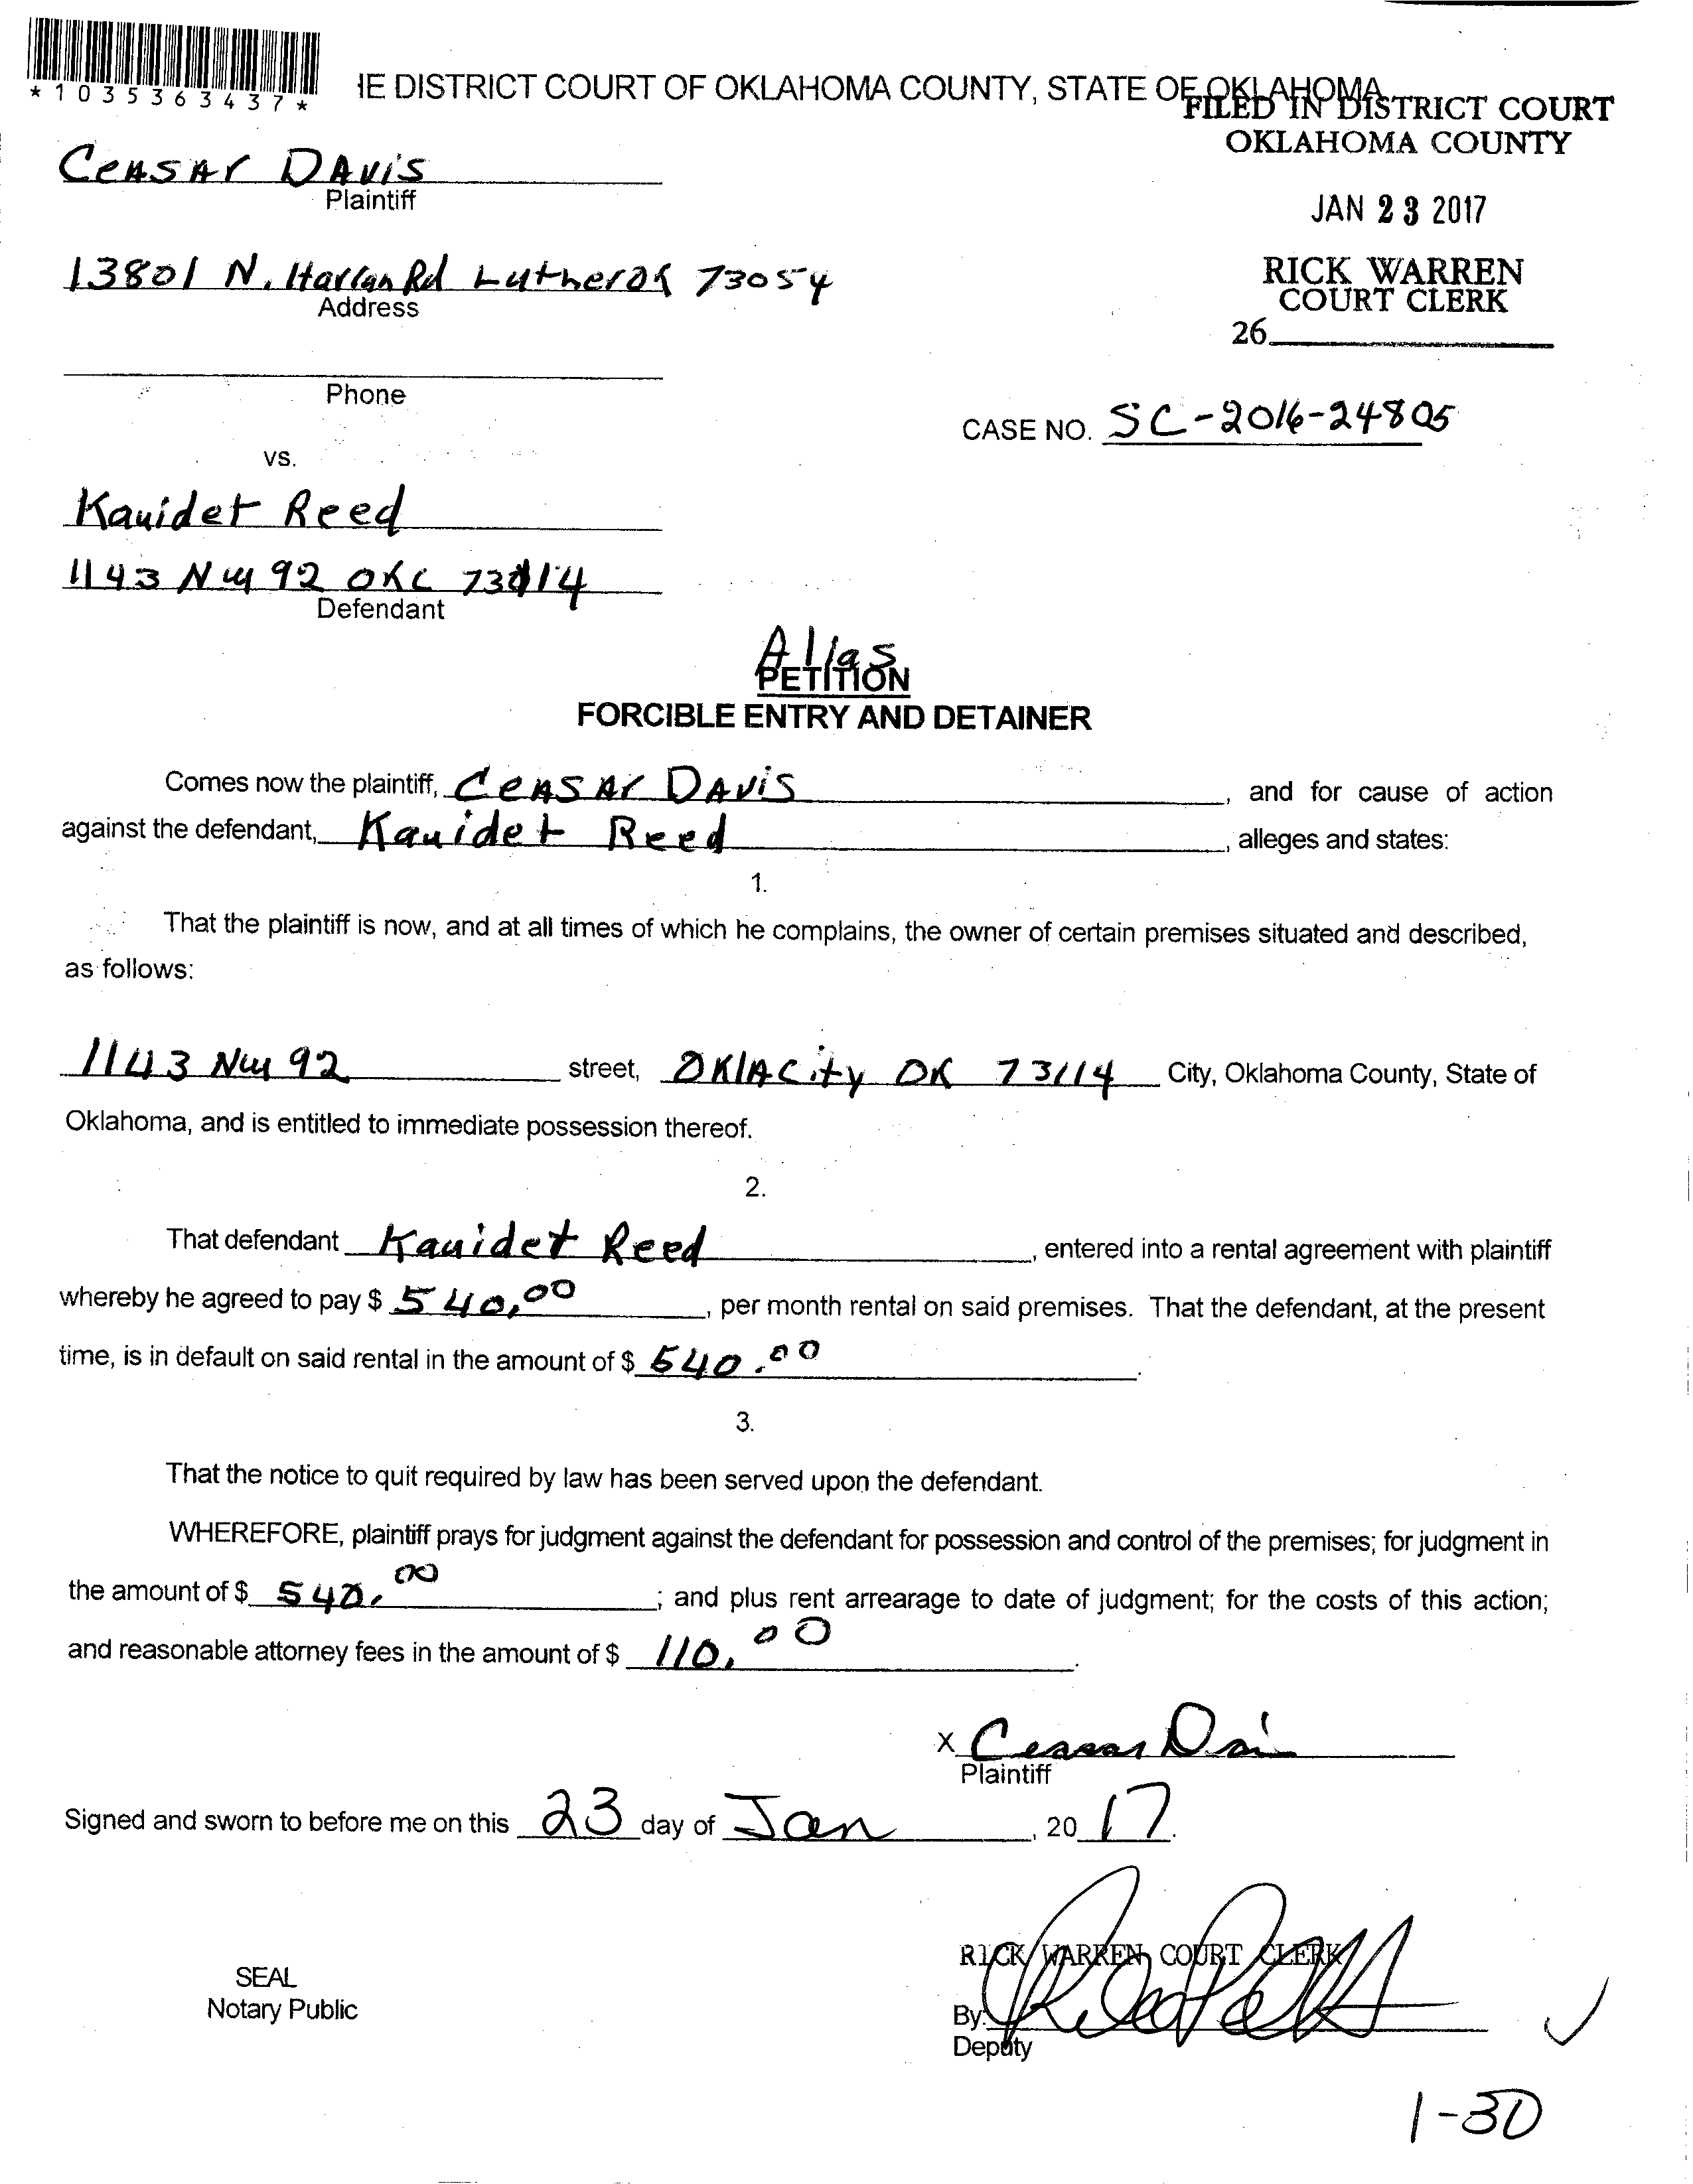 *1035363437*
IE DISTRICT COURT OF OKLAHOMA COUNTY, STATE OF OKLAHOMA
FILED IN DISTRICT COURT
OKLAHOMA COUNTY
JAN 23 2017
RICK WARREN
COURT CLERK
26
Ceasar Davis
Plaintiff
13801 N. Harlan Rd Luther OK 73054
Address
Phone
CASE NO. SC-2016-24805
vs.
Kauidet Reed
1143 NW 92 OKC 73114
Defendant
Alias
PETITION
FORCIBLE ENTRY AND DETAINER
Comes now the plaintiff, Ceasar Davis, and for cause of action
against the defendant, Kauidet Reed, alleges and states:
1.
That the plaintiff is now, and at all times of which he complains, the owner of certain premises situated and described,
as follows:
1143 NW 92 street, OKlA City OK 73114 City, Oklahoma County, State of
Oklahoma, and is entitled to immediate possession thereof.
2.
That defendant Kauidet Reed, entered into a rental agreement with plaintiff
whereby he agreed to pay $ 540.00, per month rental on said premises. That the defendant, at the present
time, is in default on said rental in the amount of $ 540.00.
3.
That the notice to quit required by law has been served upon the defendant.
WHEREFORE, plaintiff prays for judgment against the defendant for possession and control of the premises; for judgment in
the amount of $ 540.00; and plus rent arrearage to date of judgment; for the costs of this action;
and reasonable attorney fees in the amount of $ 110.00.
X Ceasar Davis
Plaintiff
Signed and sworn to before me on this 23 day of Jan, 2017.
SEAL
Notary Public
RICK WARREN COURT CLERK
By:
Deputy
1-30